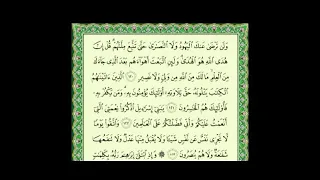 وَلَن تَرْضَىٰ عَنكَ الْيَهُودُ وَلَا النَّصَارَىٰ حَتَّىٰ تَتَّبِعَ مِلَّتَهُمْ قُلْ إِنَّ
هُدَى اللَّهِ هُوَ الْهُدَىٰ وَلَئِنِ اتَّبَعْتَ أَهْوَاءَهُم بَعْدَ الَّذِي جَاءَكَ
مِنَ الْعِلْمِ مَا لَكَ مِنَ اللَّهِ مِن وَلِيٍّ وَلَا نَصِيرٍ ١٢٠ الَّذِينَ آتَيْنَاهُمُ
الْكِتَابَ يَتْلُونَهُ حَقَّ تِلَاوَتِهِ أُولَٰئِكَ يُؤْمِنُونَ بِهِ وَمَن يَكْفُرْ بِهِ
فَأُولَٰئِكَ هُمُ الْخَاسِرُونَ ١٢١ يَا بَنِي إِسْرَائِيلَ اذْكُرُوا نِعْمَتِيَ الَّتِي
أَنْعَمْتُ عَلَيْكُمْ وَأَنِّي فَضَّلْتُكُمْ عَلَى الْعَالَمِينَ ١٢٢ وَاتَّقُوا يَوْمًا
لَّا تَجْزِي نَفْسٌ عَن نَّفْسٍ شَيْئًا وَلَا يُقْبَلُ مِنْهَا عَدْلٌ وَلَا تَنفَعُهَا
شَفَاعَةٌ وَلَا هُمْ يُنصَرُونَ ١٢٣ ۞ وَإِذِ ابْتَلَىٰ إِبْرَاهِيمَ رَبُّهُ بِكَلِمَاتٍ